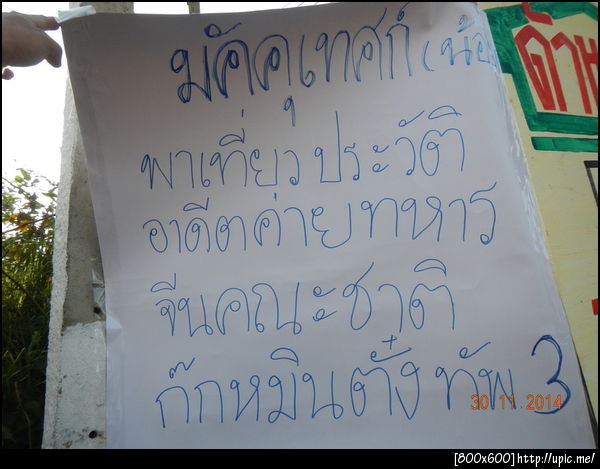 มัคคุเทศก์ (น้อ
พาเที่ยวประวัติ
อาดีตค่ายทหาร
จีนคณะชาติ
ก๊กหมินตั๋ง ทัพ 3
30.11.2014
[800x600] http://upic.me/